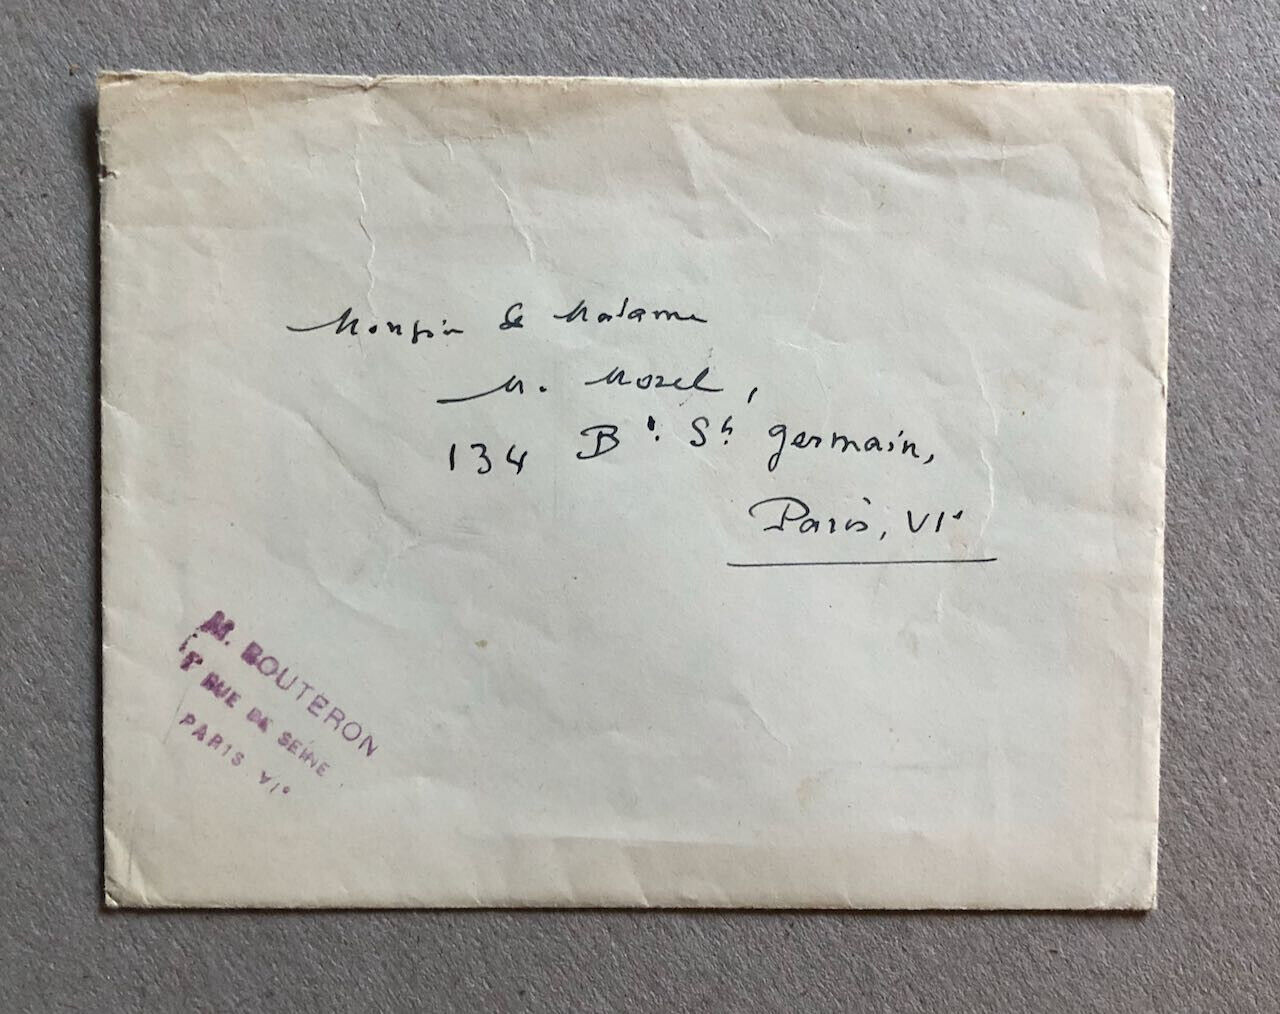 Monsieur & Madame
M. Morel,
134 Bd. St. Germain,
Paris, VIe
M. BOUTERON
RUE DE SEINE
PARIS VIe